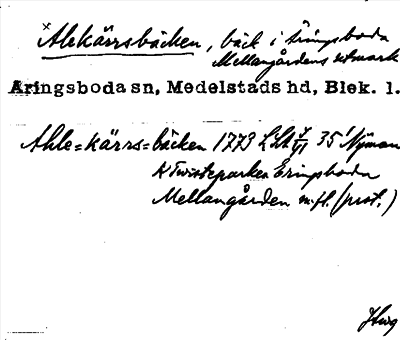 × Alekärrsbäcken, bäck i Äringsboda
Mellangårdens utmark
Äringsboda sn, Medelstads hd, Blek. l.
Ahle=kärrs=bäcken 1773 LSA 35¹ Nyman
K Twisteparken Eringsboda
Mellangården m.fl. (prot.)